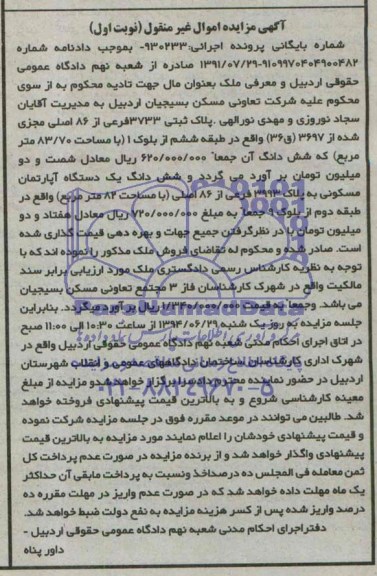 آگهی مزایده اموال غیر منقول (نوبت اول)
شماره بایگانی پرونده اجرائی:۹۳۰۲۳۳- بموجب دادنامه شماره
۹۱۰۹۹۷۰۴۰۴۹۰۰۴۸۲-۱۳۹۱/۰۷/۲۹ صادره از شعبه نهم دادگاه عمومی
حقوقی اردبیل و معرفی ملک بعنوان مال جهت تادیه محکوم به از سوی
محکوم علیه شرکت تعاونی مسکن بسیجیان اردبیل به مدیریت آقایان
سجاد نوروزی و مهدی نورالهی .پلاک ثبتی ۳۷۳۳فرعی از ۸۶ اصلی مجزی
شده از ۳۶۹۷ (ق۳۶) واقع در طبقه ششم از بلوک ۱ (با مساحت ۸۳/۷۰ متر
مربع) که شش دانگ آن جمعا ۶۲۰/۰۰۰/۰۰۰ ریال معادل شصت و دو
میلیون تومان بر آورد می گردد و شش دانگ یک دستگاه آپارتمان
مسکونی به پلاک ۳۹۹۳ فرعی از ۸۶ اصلی (با مساحت ۸۲ متر مربع) واقع در
طبقه دوم از بلوک ۹ جمعاً به مبلغ ۷۲۰/۰۰۰/۰۰۰ ریال معادل هفتاد و دو
میلیون تومان با در نظرگرفتن جمیع جهات و بهره دهی قیمت گذاری شده
است. صادر شده و محکوم له تقاضای فروش ملک مذکور را نموده اند که با
توجه به نظریه کارشناس رسمی دادگستری ملک مورد ارزیابی برابر سند
مالکیت واقع در شهرک کارشناسان فاز ۳ مجتمع تعاونی مسکن بسیجیان
می باشد. وجمعاً به قیمت ۱/۳۴۰/۰۰۰/۰۰۰ ریال بر آورد میگردد. بنابراین
جلسه مزایده به روز یک شنبه ۱۳۹۴/۰۶/۲۹ از ساعت ۱۰:۳۰ الی ۱۱:۰۰ صبح
در اتاق اجرای احکام مدنی شعبه نهم دادگاه عمومی حقوقی اردبیل واقع در
شهرک اداری کارشناسان ساختمان دادگاههای عمومی و انقلاب شهرستان
اردبیل در حضور نماینده محترم دادسرا برگزار خواهد شدو مزایده از مبلغ
معینه کارشناسی شروع و به بالاترین قیمت پیشنهادی فروخته خواهد
شد. طالبین می توانند در موعد مقرره فوق در جلسه مزایده شرکت نموده
و قیمت پیشنهادی خودشان را اعلام نمایند مورد مزایده به بالاترین قیمت
پیشنهادی واگذار خواهد شد و از برنده مزایده در صورت عدم پرداخت کل
ثمن معامله فی المجلس ده درصداخذ ونسبت به پرداخت مابقی آن حداکثر
یک ماه مهلت داده خواهد شد که در صورت عدم واریز در مهلت مقرره ده
درصد واریز شده پس از کسر هزینه مزایده به نفع دولت ضبط خواهد شد.
دفتراجرای احکام مدنی شعبه نهم دادگاه عمومی حقوقی اردبیل -
داور پناه